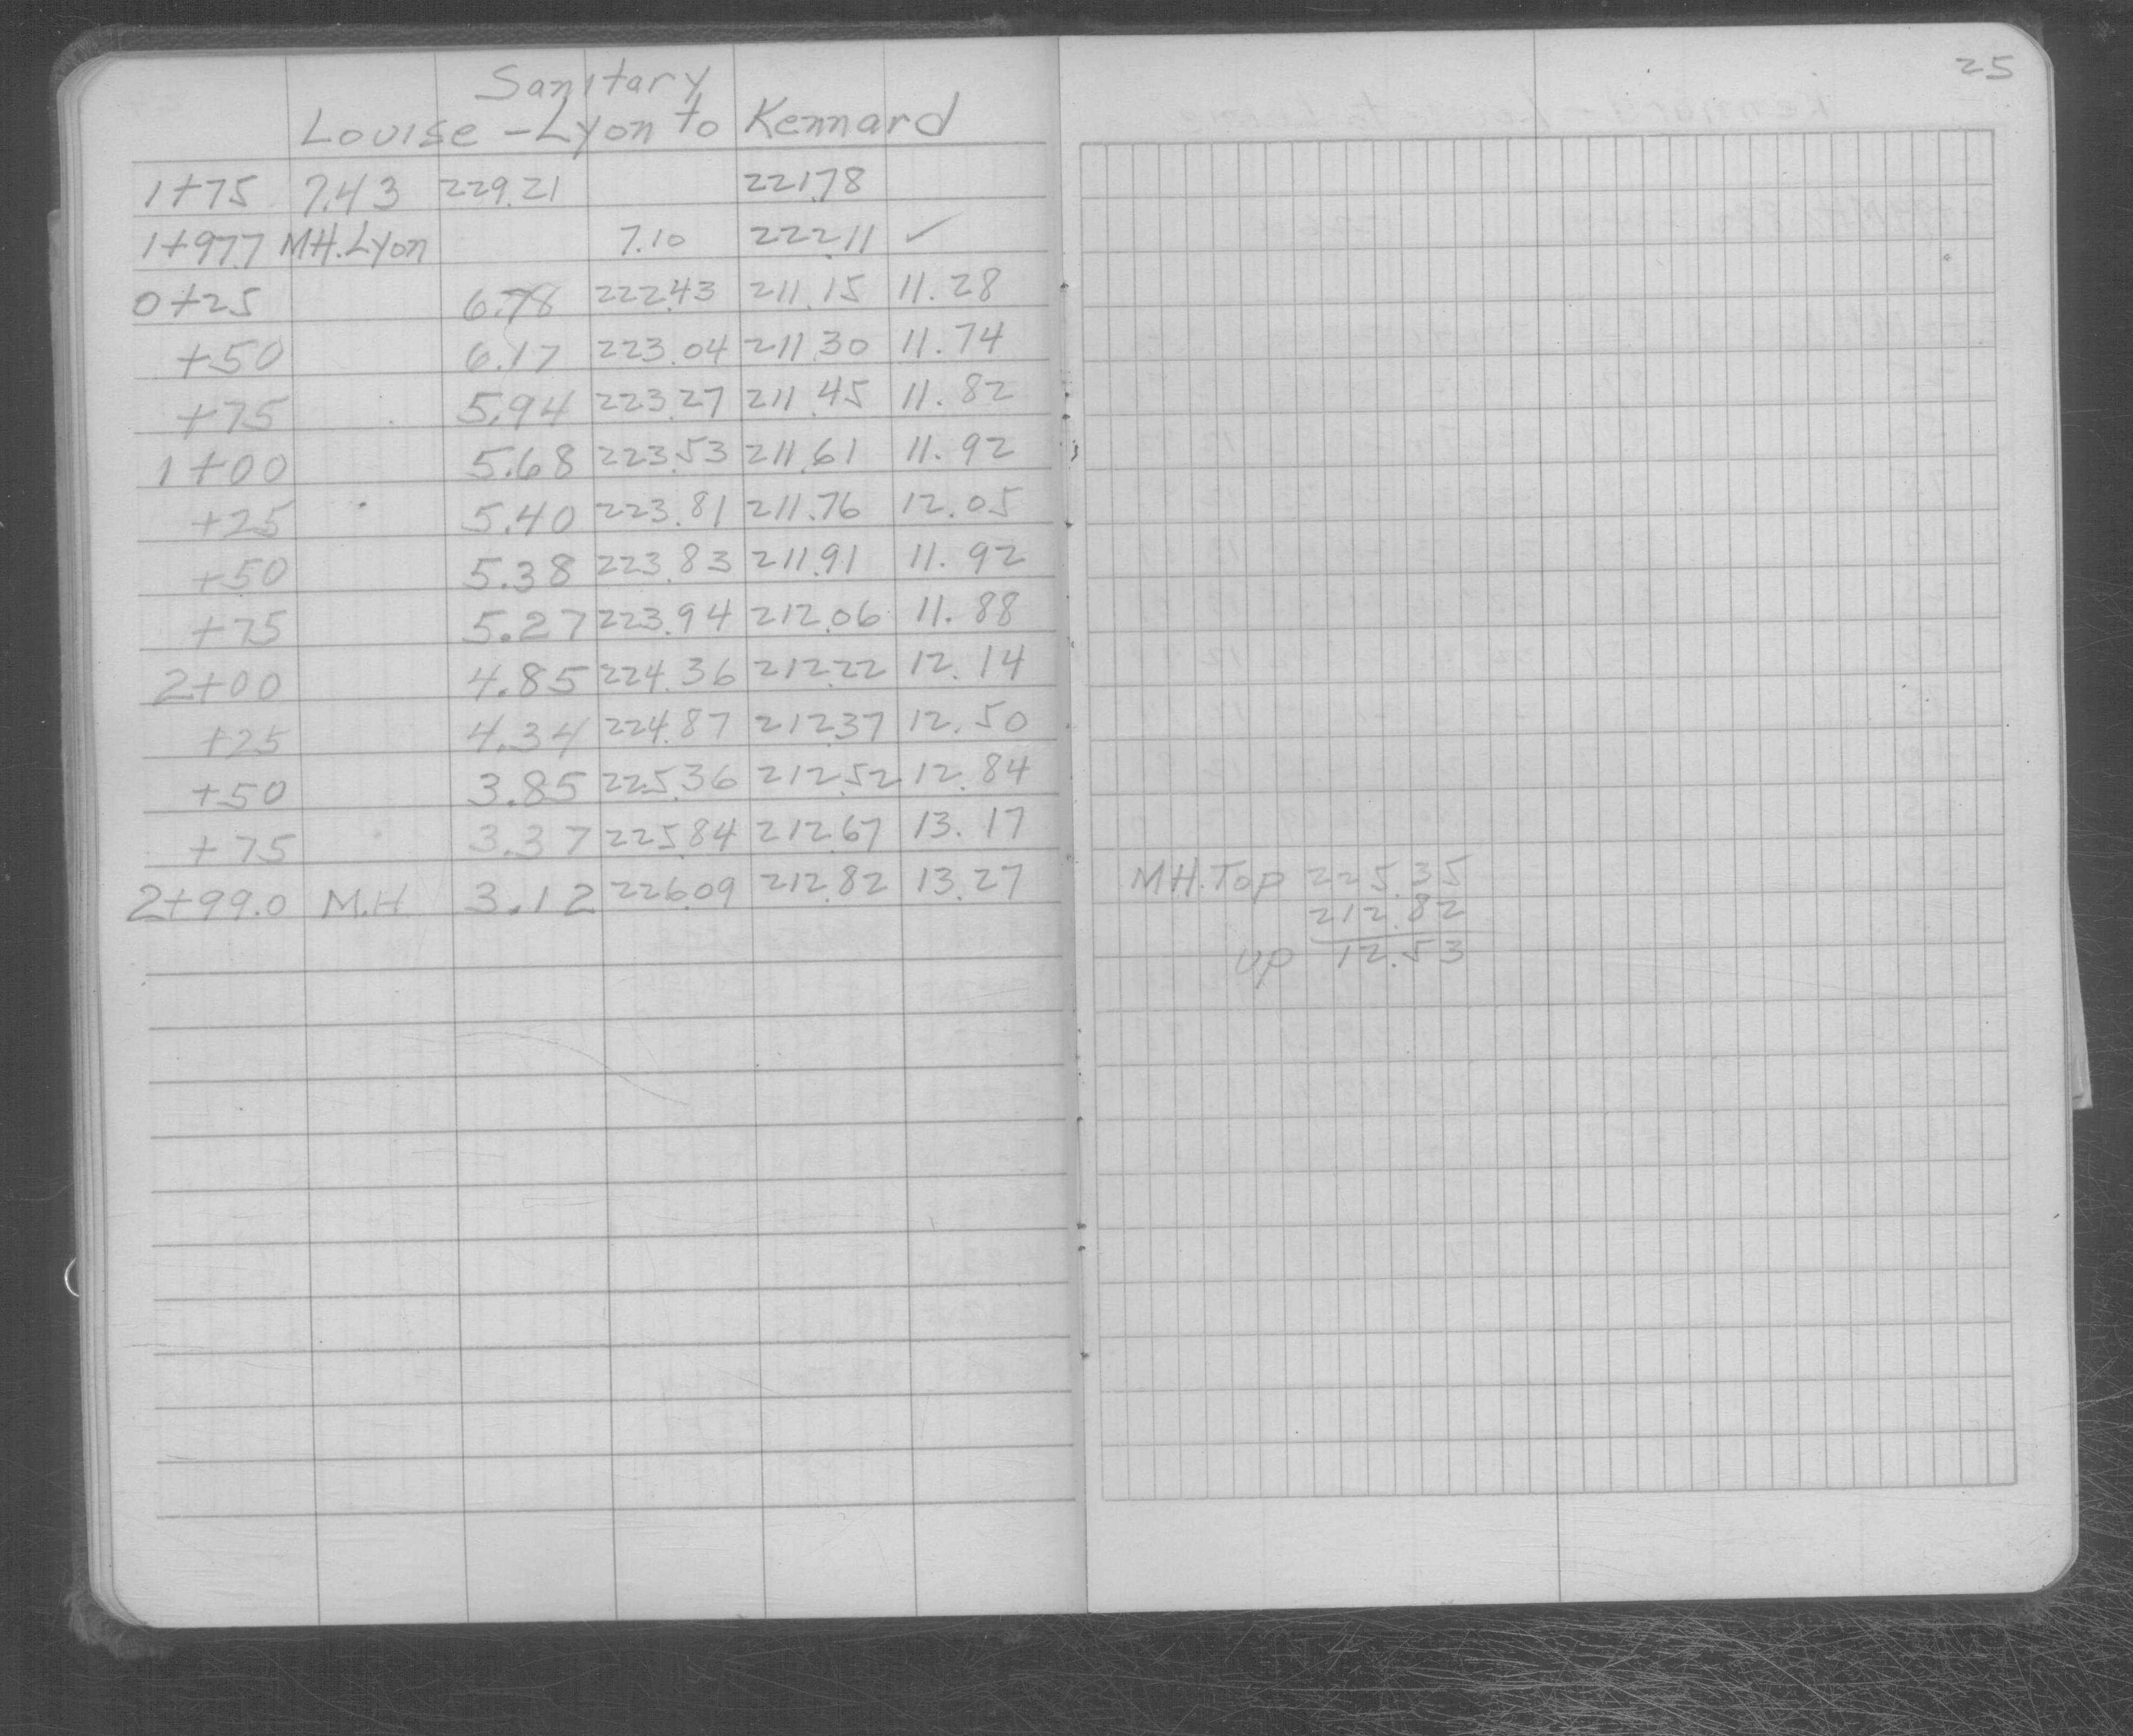 Sanitary
Louise - Lyon to Kennard
1+75 7.43 229.21 221.78
1+97.7 MH. Lyon 7.10 222.11 ✓
0+25 6.78 222.43 211.15 11.28
+50 6.17 223.04 211.30 11.74
+75 5.94 223.27 211.45 11.82
1+00 5.68 223.53 211.61 11.92
+25 5.40 223.81 211.76 12.05
+50 5.38 223.83 211.91 11.92
+75 5.27 223.94 212.06 11.88
2+00 4.85 224.36 212.22 12.14
+25 4.34 224.87 212.37 12.50
+50 3.85 225.36 212.52 12.84
+75 3.37 225.84 212.67 13.17
2+99.0 M.H 3.12 226.09 212.82 13.27
25
MH. Top 225.35
212.82
up 12.53